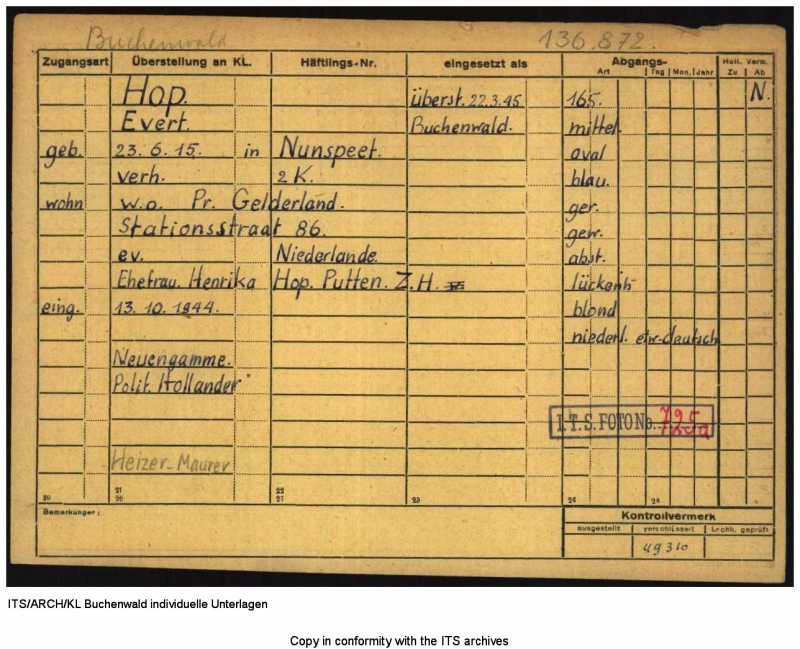 Buchenwald 136.872.
Zugangsart Überstellung an KL. Häftlings-Nr. eingesetzt als Abgangs- Holl. Verm.
Art Tag Mon. Jahr Zu Ab
Hop. überst. 22.3.45 165. N.
Evert. Buchenwald. mittel.
geb. 23.6.15. in Nunspeet. oval
verh. 2 K. blau.
wohn w.o. Pr. Gelderland. ger.
Stationsstraat 86. gew.
ev. Niederlande. abst.
Ehefrau. Henrika Hop. Putten. Z.H. lückenh
eing. 13.10.1944. blond
niederl. etw. deutsch
Neuengamme.
Polit. Hollander
I.T.S. FOTO No. 725a
Heizer-Maurer
20 21 26 22 27 23 24 25
Bemerkungen: Kontrollvermerk
ausgestellt verschlüsselt Lochk. geprüft
49310
ITS/ARCH/KL Buchenwald individuelle Unterlagen
Copy in conformity with the ITS archives